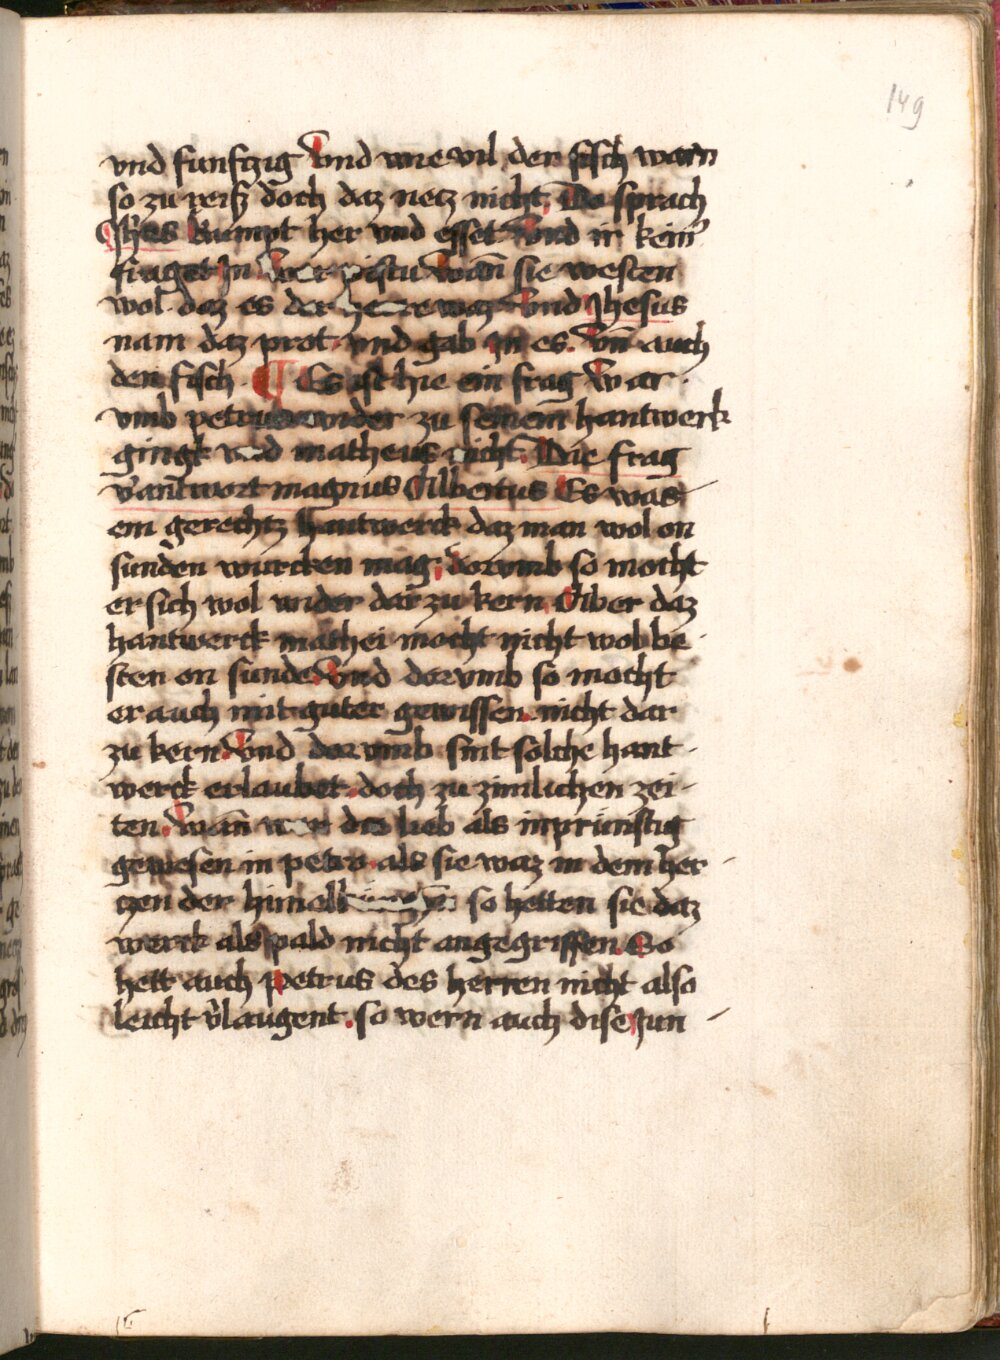 149
vnd funftzig Vnd wie vil der fisch warn
so zu reiß doch daz netz nicht. Do sprach
Jhes kumpt her vnd esset Vnd ir kein
fraget in Wer pistu Wan̄ sie westen
wol daz es der herre waz Vnd Jhesus
nam daz prot vnd gab in es. Vn̄ auch
den fisch ¶ Es ist hie ein frag War
vmb petrus wider zu seinem hantwerk
gingk vnd matheus nicht. Die frag
v̾antwort magnus Albertus Es was
ein gerechtz hantwerck daz man wol on
sunden wurcken mag. dorvmb so mocht
er sich wol wider dar zu kern. Aber daz
hantwerck mathei mocht nicht wol be
sten on sunde. Vnd dorvmb so mocht
er auch mit guter gewissen nicht dar
zu kern. Vnd dorvmb sint solche hant
werck erlaubet. doch zu zimlichen zei
ten. Wan̄ wer die lieb als inprünstig
gewesen in petro. als sie waz in dem her
czen der so hetten sie daz
werck als pald nicht angegriffen. So
hett auch petrus des herren nicht also
leicht v̾laugent. so wern auch dise Jun